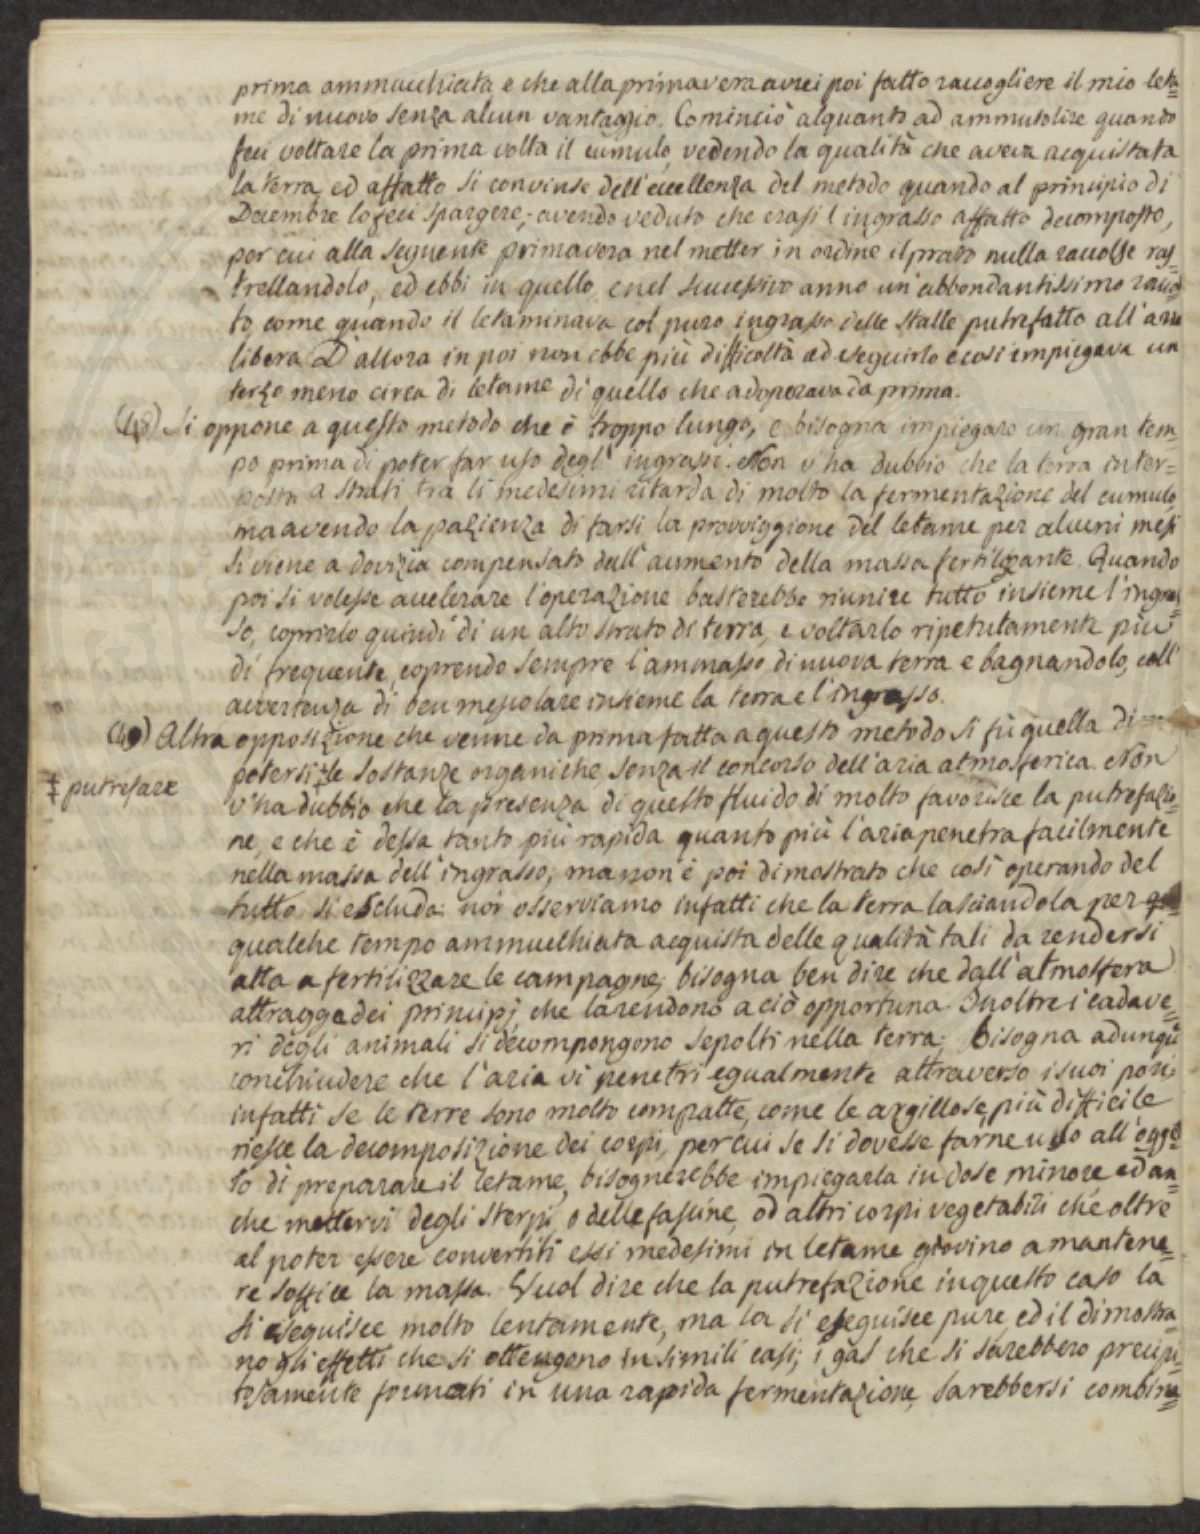 prima ammucchiata e che alla primavera avrei poi fatto raccogliere il mio leta=
me di nuovo senza alcun vantaggio. Cominciò alquanto ad ammutolire quando
feci voltare la prima volta il cumulo, vedendo la qualità che aveva acquistata
la terra, ed affatto si convinse dell'eccellenza del metodo quando al principio di
Decembre lo feci spargere, avendo veduto che erasi l'ingrasso affatto decomposto,
per cui alla seguente primavera nel metter in ordine il prato nulla raccolse ras=
trellandolo, ed ebbi in quello, e nel successivo anno un'abbondantissimo raccol=
to come quando il letaminava col puro ingrasso delle stalle putrefatto all'aria
libera. D'allora in poi non ebbe più difficoltà ad eseguirlo e così impiegava un
terzo meno circa di letame di quello che adoperava da prima.
(48) Si oppone a questo metodo che è troppo lungo, e bisogna impiegare un gran tem=
po prima di poter far uso degl'ingrassi. Non v'ha dubbio che la terra inter=
posta a strati tra li medesimi ritarda di molto la fermentazione del cumulo,
ma avendo la pazienza di farsi la provviggione del letame per alcuni mesi
si viene a dovizia compensato dall'aumento della massa fertilizzante. Quando
poi si volesse accelerare l'operazione basterebbe riunire tutto insieme l'ingras=
so, coprirlo quindi di un alto strato di terra, e voltarlo ripetutamente più
di frequente, coprendo sempre l'ammasso di nuova terra e bagnandolo, coll'
avvertenza di ben mescolare insieme la terra e l'ingrasso.
(49) Altra opposizione che venne da prima fatta a questo metodo si fù quella di
potersi ‡ le sostanze organiche senza il concorso dell'aria atmosferica. Non
‡ putrefare
v'ha dubbio che la presenza di questo fluido di molto favorisce la putrefazio=
ne, e che è dessa tanto più rapida quanto più l'aria penetra facilmente
nella massa dell'ingrasso; ma non è poi dimostrato che così operando del
tutto si escluda: noi osserviamo infatti che la terra lasciandola per
qualche tempo ammucchiata acquista delle qualità tali da rendersi
atta a fertilizzare le campagne; bisogna ben dire che dall'atmosfera
attragga dei principj che la rendono a ciò opportuna. Inoltre i cadave=
ri degli animali si decompongono sepolti nella terra; bisogna adunque
conchiudere che l'aria vi penetri egualmente attraverso i suoi pori:
infatti se le terre sono molto compatte, come le argillose, più difficile
riesce la decomposizione dei corpi, per cui se si dovesse farne uso all'ogget=
to di preparare il letame, bisognerebbe impiegarla in dose minore ed an=
che mettervi degli sterpi, o delle fascine, od altri corpi vegetabili che oltre
al poter essere convertiti essi medesimi in letame giovino a mantene=
re soffice la massa. Vuol dire che la putrefazione in questo caso la
si eseguisce molto lentamente, ma la si eseguisce pure, ed il dimostra=
no gli effetti che si ottengono in simili casi; i gas che si sarebbero precipi=
tosamente formati in una rapida fermentazione, sarebbersi combina=